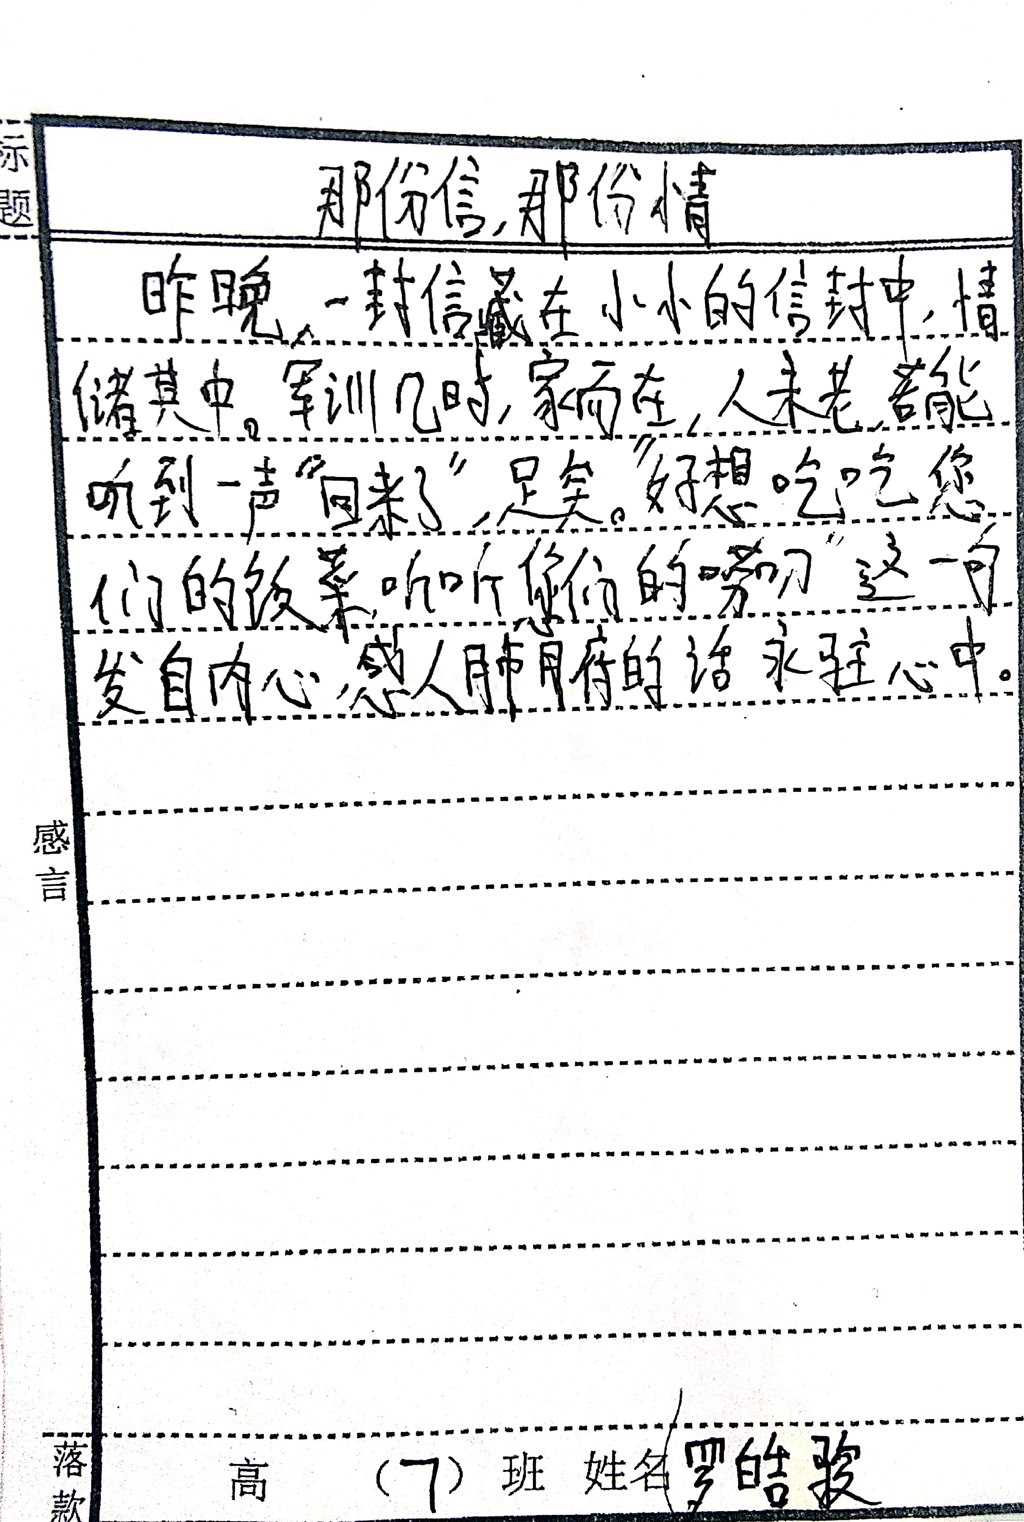 标题
那份信,那份情
昨晚,一封信藏在小小的信封中,情
储其中。军训几时,家而在,人未老,若能
听到一声“回来了”,足矣。“好想吃吃您
们的饭菜,听听您们的唠叨”这一句
发自内心,感人肺府的话永驻心中。
感言
落款 高 (7) 班 姓名 罗皓骏